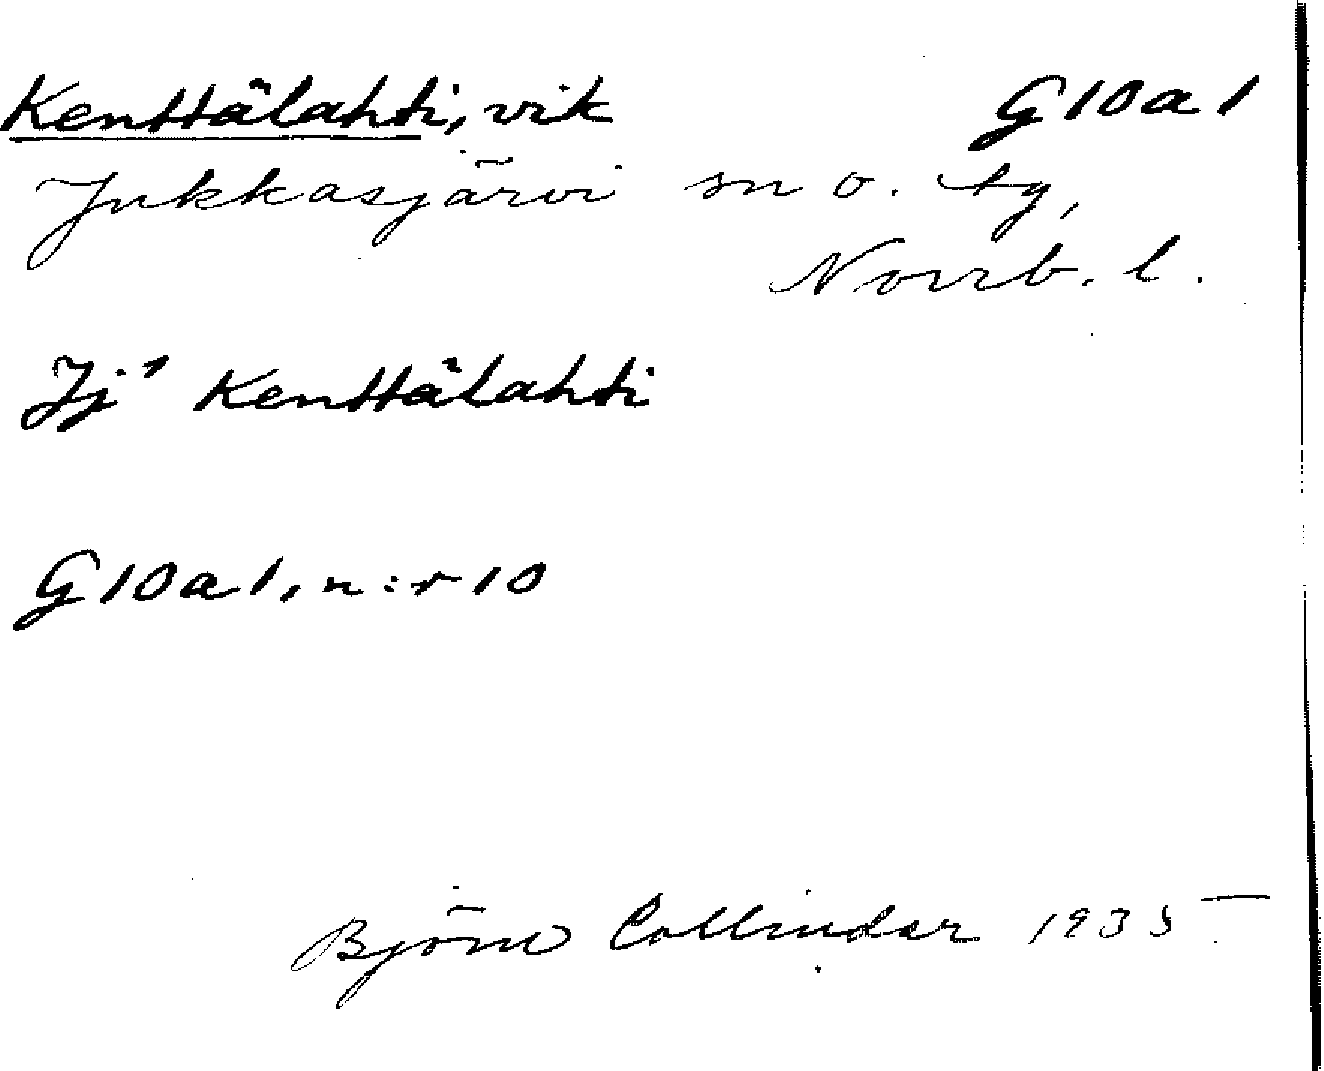 Kenttälahti, vik G10a1
Jukkasjärvi sn o. tg,
Norrb. l.
Jj¹ Kenttälahti
G10a1, n:r 10
Björn Collinder 1935